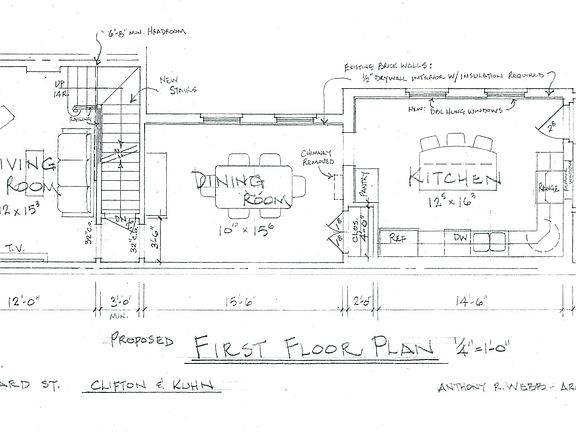 6'-8" MIN. HEADROOM
NEW
STAIRS
UP
14R
RAILING
EXISTING BRICK WALLS:
1/2" DRYWALL INTERIOR W/ INSULATION REQUIRED
NEW: DBL HUNG WINDOWS
2'8
CHIMNEY
REMOVED
LIVING
ROOM
12 x 15³
DINING
ROOM
10¹⁰ x 15⁶
PANTRY
KITCHEN
12⁵ x 16³
RANGE
T.V.
DN
32" C.O.
32" C.O.
3'-6"
CLOS.
4'-0"
REF
DW
12'-0"
3'-0"
MIN.
15'-6"
2'-0"
14'-6"
PROPOSED FIRST FLOOR PLAN 1/4"=1'-0"
ARD ST. CLIFTON & KUHN
ANTHONY R. WEBBS - AR